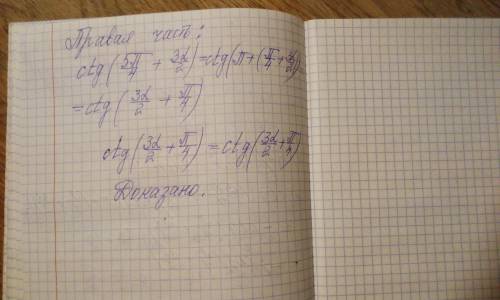 Правая часть:
ctg(5π/4 + 3α/2) = ctg(π + (π/4 + 3α/2)) =
= ctg(3α/2 + π/4)
ctg(3α/2 + π/4) = ctg(3α/2 + π/4)
Доказано.